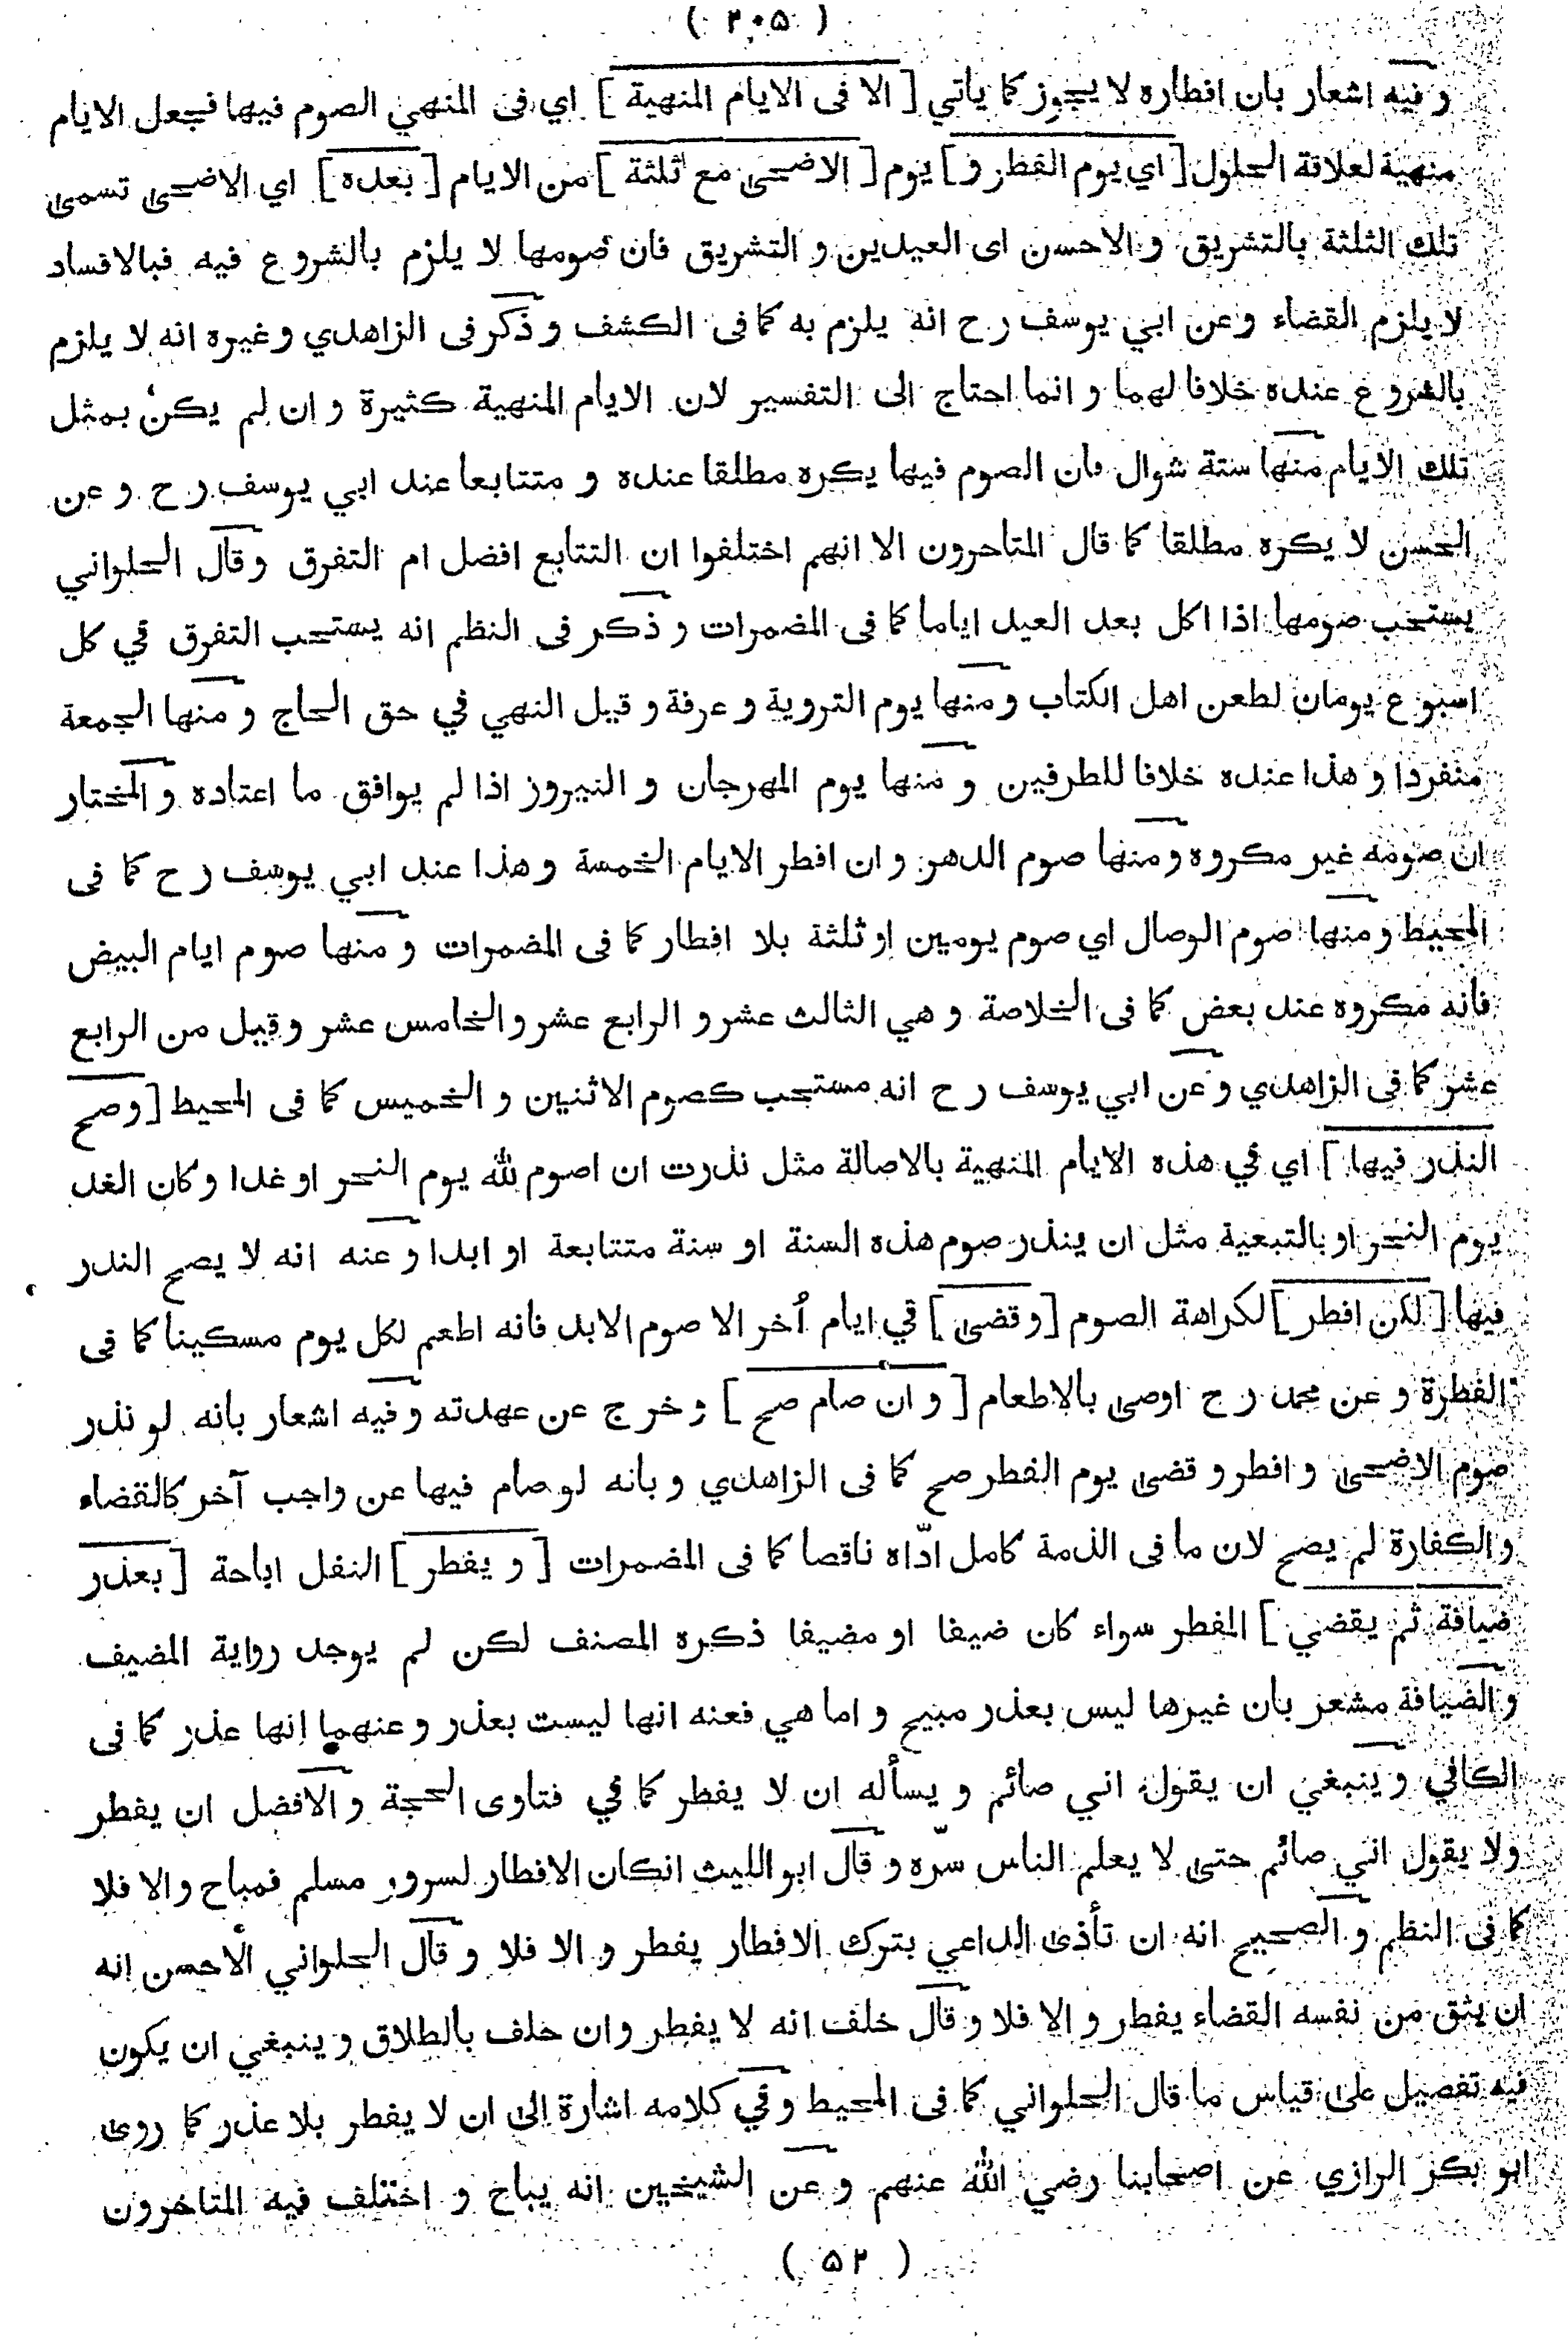 ( ٢٠٥ )
و فيه اشعار بان افطاره لا يجوز كما يأتي [ الا فى الايام المنهية ] اي فى المنهي الصوم فيها فجعل الايام
منهية لعلاقة الحلول [ اي يوم الفطر و ] يوم [ الاضحى مع ثلثة ] من الايام [ بعده ] اي الاضحى تسمى
تلك الثلثة بالتشريق و الاحسن اى العيدين و التشريق فان صومها لا يلزم بالشروع فيه فبالافساد
لا يلزم القضاء وعن ابي يوسف رح انه يلزم به كما فى الكشف و ذكر فى الزاهدي وغيره انه لا يلزم
بالشروع عنده خلافا لهما و انما احتاج الى التفسير لان الايام المنهية كثيرة و ان لم يكن بمثل
تلك الايام منها ستة شوال فان الصوم فيها يكره مطلقا عنده و متتابعا عند ابي يوسف رح و عن
الحسن لا يكره مطلقا كما قال المتاخرون الا انهم اختلفوا ان التتابع افضل ام التفرق وقال الحلواني
يستحب صومها اذا اكل بعد العيد اياما كما فى المضمرات و ذكر فى النظم انه يستحب التفرق في كل
اسبوع يومان لطعن اهل الكتاب و منها يوم التروية و عرفة و قيل النهي في حق الحاج و منها الجمعة
منفردا و هذا عنده خلافا للطرفين و منها يوم المهرجان و النيروز اذا لم يوافق ما اعتاده و المختار
ان صومه غير مكروه و منها صوم الدهر و ان افطر الايام الخمسة و هذا عند ابي يوسف رح كما فى
المحيط و منها صوم الوصال اي صوم يومين او ثلثة بلا افطار كما فى المضمرات و منها صوم ايام البيض
فانه مكروه عند بعض كما فى الخلاصة و هي الثالث عشر و الرابع عشر و الخامس عشر و قيل من الرابع
عشر كما فى الزاهدي و عن ابي يوسف رح انه مستحب كصوم الاثنين و الخميس كما فى المحيط [ و صح
النذر فيها ] اي في هذه الايام المنهية بالاصالة مثل نذرت ان اصوم لله يوم النحر او غدا و كان الغد
يوم النحر او بالتبعية مثل ان ينذر صوم هذه السنة او سنة متتابعة او ابدا و عنه انه لا يصح النذر
فيها [ لكن افطر ] لكراهة الصوم [ و قضى ] في ايام أخر الا صوم الابد فانه اطعم لكل يوم مسكينا كما فى
الفطرة و عن محمد رح اوصى بالاطعام [ و ان صام صح ] و خرج عن عهدته و فيه اشعار بانه لو نذر
صوم الاضحى و افطر و قضى يوم الفطر صح كما فى الزاهدي و بانه لو صام فيها عن واجب آخر كالقضاء
و الكفارة لم يصح لان ما فى الذمة كامل ادّاه ناقصا كما فى المضمرات [ و يفطر ] النفل اباحة [ بعذر
ضيافة ثم يقضي ] المفطر سواء كان ضيفا او مضيفا ذكره المصنف لكن لم يوجد رواية المضيف
و الضيافة مشعر بان غيرها ليس بعذر مبيح و اما هي فعنه انها ليست بعذر و عنهما انها عذر كما فى
الكافي و ينبغي ان يقول اني صائم و يسأله ان لا يفطر كما في فتاوى الحجة و الافضل ان يفطر
ولا يقول اني صائم حتى لا يعلم الناس سرّه و قال ابو الليث انكان الافطار لسرور مسلم فمباح و الا فلا
كما فى النظم و الصحيح انه ان تأذى الداعي بترك الافطار يفطر و الا فلا و قال الحلواني الاحسن انه
ان يثق من نفسه القضاء يفطر و الا فلا و قال خلف انه لا يفطر و ان حلف بالطلاق و ينبغي ان يكون
فيه تفصيل على قياس ما قال الحلواني كما فى المحيط و في كلامه اشارة الى ان لا يفطر بلا عذر كما روى
ابو بكر الرازي عن اصحابنا رضي الله عنهم و عن الشيخين انه يباح و اختلف فيه المتاخرون
( ٥٢ )